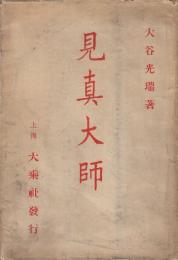 大谷光瑞著
見真大師
上海 大乗社發行